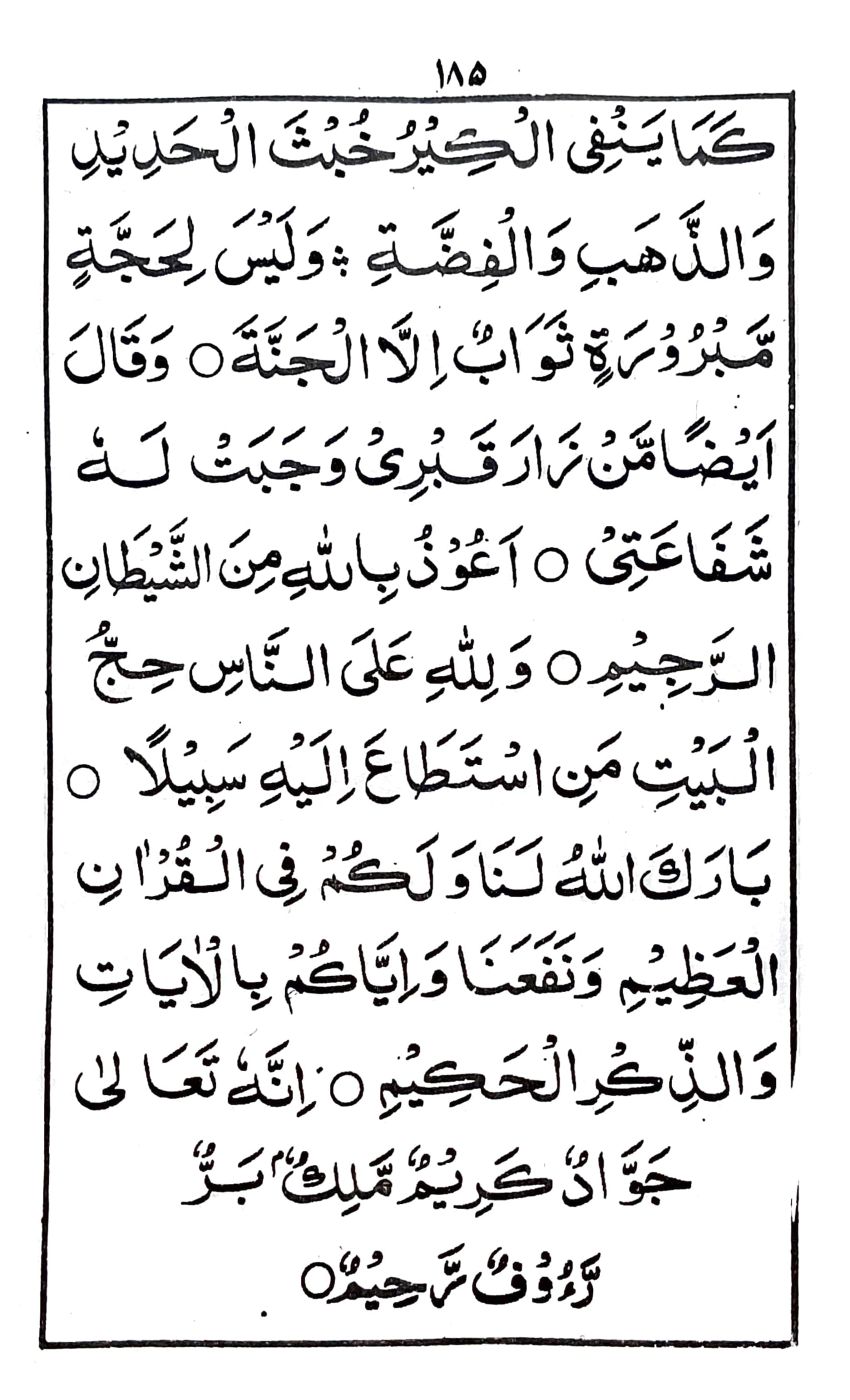 ۱۸۵
كَمَا يَنْفِی الْكِيْرُ خُبْثَ الْحَدِيْدِ
وَالذَّهَبِ وَالْفِضَّةِ ؞ وَلَيْسَ لِحَجَّةٍ
مَّبْرُوْرَةٍ ثَوَابٌ اِلَّا الْجَنَّةَ ○ وَقَالَ
اَيْضًا مَّنْ زَارَ قَبْرِیْ وَجَبَتْ لَهٗ
شَفَاعَتِیْ ○ اَعُوْذُ بِاللّٰهِ مِنَ الشَّيْطَانِ
الرَّجِيْمِ ○ وَلِلّٰهِ عَلَی النَّاسِ حِجُّ
الْبَيْتِ مَنِ اسْتَطَاعَ اِلَيْهِ سَبِيْلًا ○
بَارَكَ اللّٰهُ لَنَا وَلَكُمْ فِی الْقُرْاٰنِ
الْعَظِيْمِ وَنَفَعَنَا وَاِيَّاكُمْ بِالْاٰيَاتِ
وَالذِّكْرِ الْحَكِيْمِ ○ اِنَّهٗ تَعَالٰی
جَوَّادٌ كَرِيْمٌ مَّلِكٌۢ بَرٌّ
رَّءُوْفٌ رَّحِيْمٌ ○